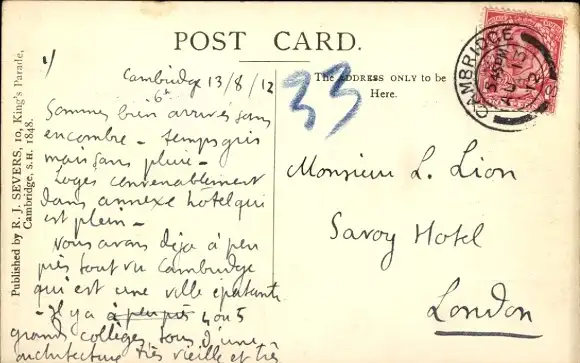 POST CARD.
Published by R. J. SEVERS, 10, King's Parade,
Cambridge. S.H. 1848.
1/
Cambridge 13/8/12
6h
Sommes bien arrivés sans
encombre - temps gris
mais sans pluie -
Logés convenablement
dans annexe hôtel qui
est plein -
Vous avons déja à peu
près tout vu Cambridge
qui est une ville épatante
- Il y a à peu près 4 ou 5
grands collèges tous d'une
architecture très vieille et très
33
The ADDRESS ONLY to be
Here.
CAMBRIDGE
AU 13
12
Monsieur L. Lion
Savoy Hotel
London